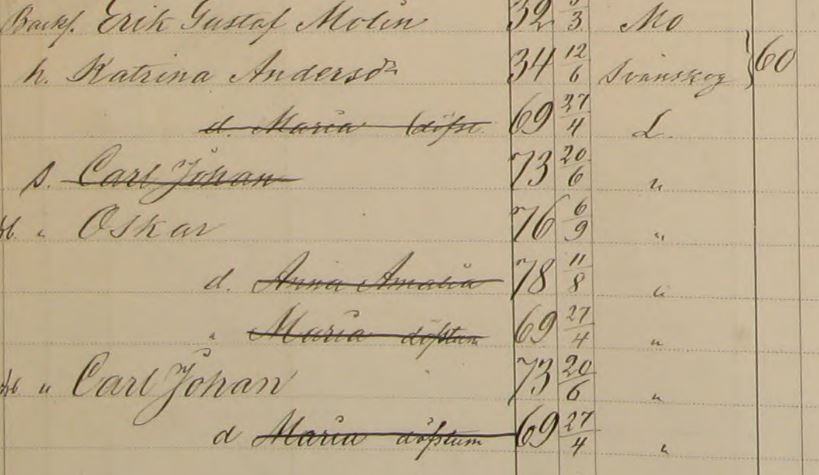 Backs. Erik Gustaf Molin 32 3 Mo
h. Katrina Andersdr 34 12/6 Svanskog } 60
d. Maria döfst. 69 27/4 L.
s. Carl Johan 73 20/6 "
" Oskar 76 6/9 "
d. Anna Amalia 78 11/8 "
" Maria döfstum 69 27/4 "
" Carl Johan 73 20/6 "
d Maria döfstum 69 27/4 "